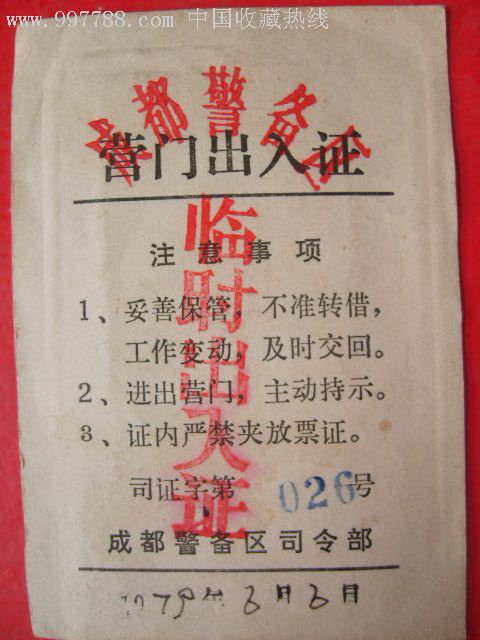 www.997788.com 中国收藏热线
成都警备区
营门出入证
临时出入证
注意事项
1、妥善保管，不准转借，
工作变动，及时交回。
2、进出营门，主动持示。
3、证内严禁夹放票证。
司证字第 026号
成都警备区司令部
1979年6月6日